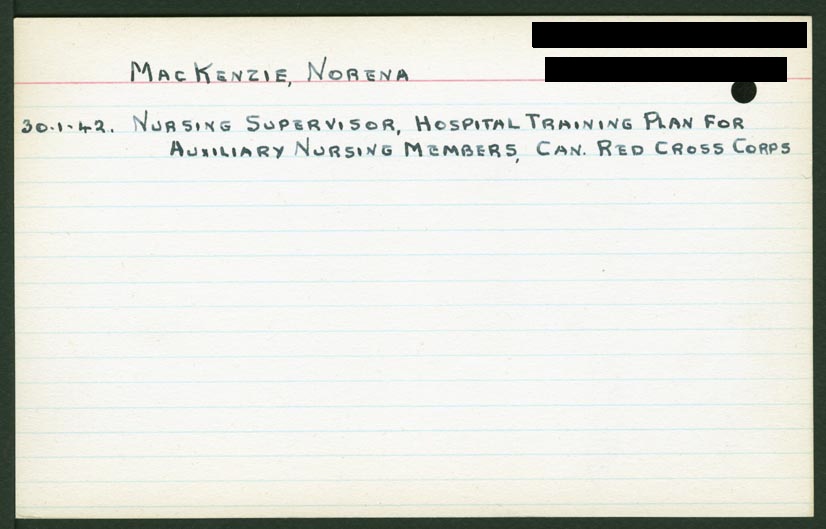 MacKenzie, Norena
30.1.42. Nursing Supervisor, Hospital Training Plan for
Auxiliary Nursing Members, Can. Red Cross Corps